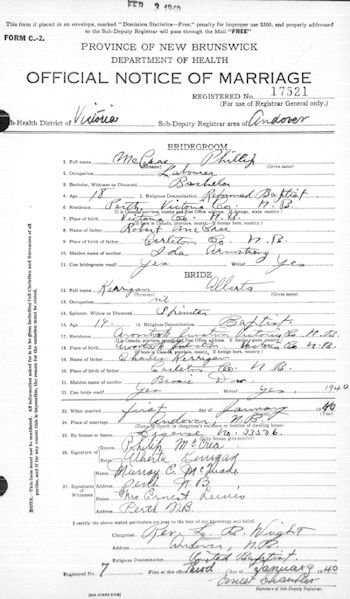 FEB 3 1940
This form if placed in an envelope, marked "Dominion Statistics—Free," penalty for improper use $300, and properly addressed
to the Sub-Deputy Registrar will pass through the Mail "FREE"
FORM C.-2.
PROVINCE OF NEW BRUNSWICK
DEPARTMENT OF HEALTH
OFFICIAL NOTICE OF MARRIAGE
REGISTERED NO. 17521
(For use of Registrar General only.)
Sub-Health District of Victoria Sub-Deputy Registrar area of Andover
BRIDEGROOM
1. Full name McCrae Phillip
(Surname) (Given names)
2. Occupation Laborer
3. Bachelor, Widower or Divorced Bachelor
4. Age 18 5. Religious Denomination Reformed Baptist
6. Residence Perth Victoria Co. N.B.
7. Place of birth Victoria Co. N.B.
8. Name of father Robert McCrae
9. Place of birth Carleton Co. N.B.
10. Maiden name of mother Ida Armstrong
11. Can bridegroom read? Yes Write? Yes
BRIDE
12. Full name Kerrigan Alberta
(Surname) (Given names)
13. Occupation nil
14. Spinster, Widow or Divorced Spinster
15. Age 19 16. Religious Denomination Baptist
17. Residence Aroostook Junction Victoria Co. N.B.
18. Place of birth Aroostook Junction Victoria Co. N.B.
19. Name of father Charles Kerrigan
20. Place of birth Carleton Co. N.B.
21. Maiden name of mother Dow
22. Can bride read? Yes Write? Yes
23. When married first day of January 1940
24. Place of marriage Andover, N.B.
25. By license or banns License No. 33506
26. Signature of Philip McCrea
Alberta Kerrigan
27. Signature of Witnesses Murray C. McQuade
Address Perth N.B.
Mrs Ernest Lewis
Address Perth N.B.
I certify the above stated particulars are true to the best of my knowledge and belief.
Clergyman Rev. L. B. Wright
Address Andover, N.B.
Religious Denomination United Baptist
Registered No. 7 Filed at this office Third January 1940
Ernest Chandler
Signature of Sub-Deputy Registrar.